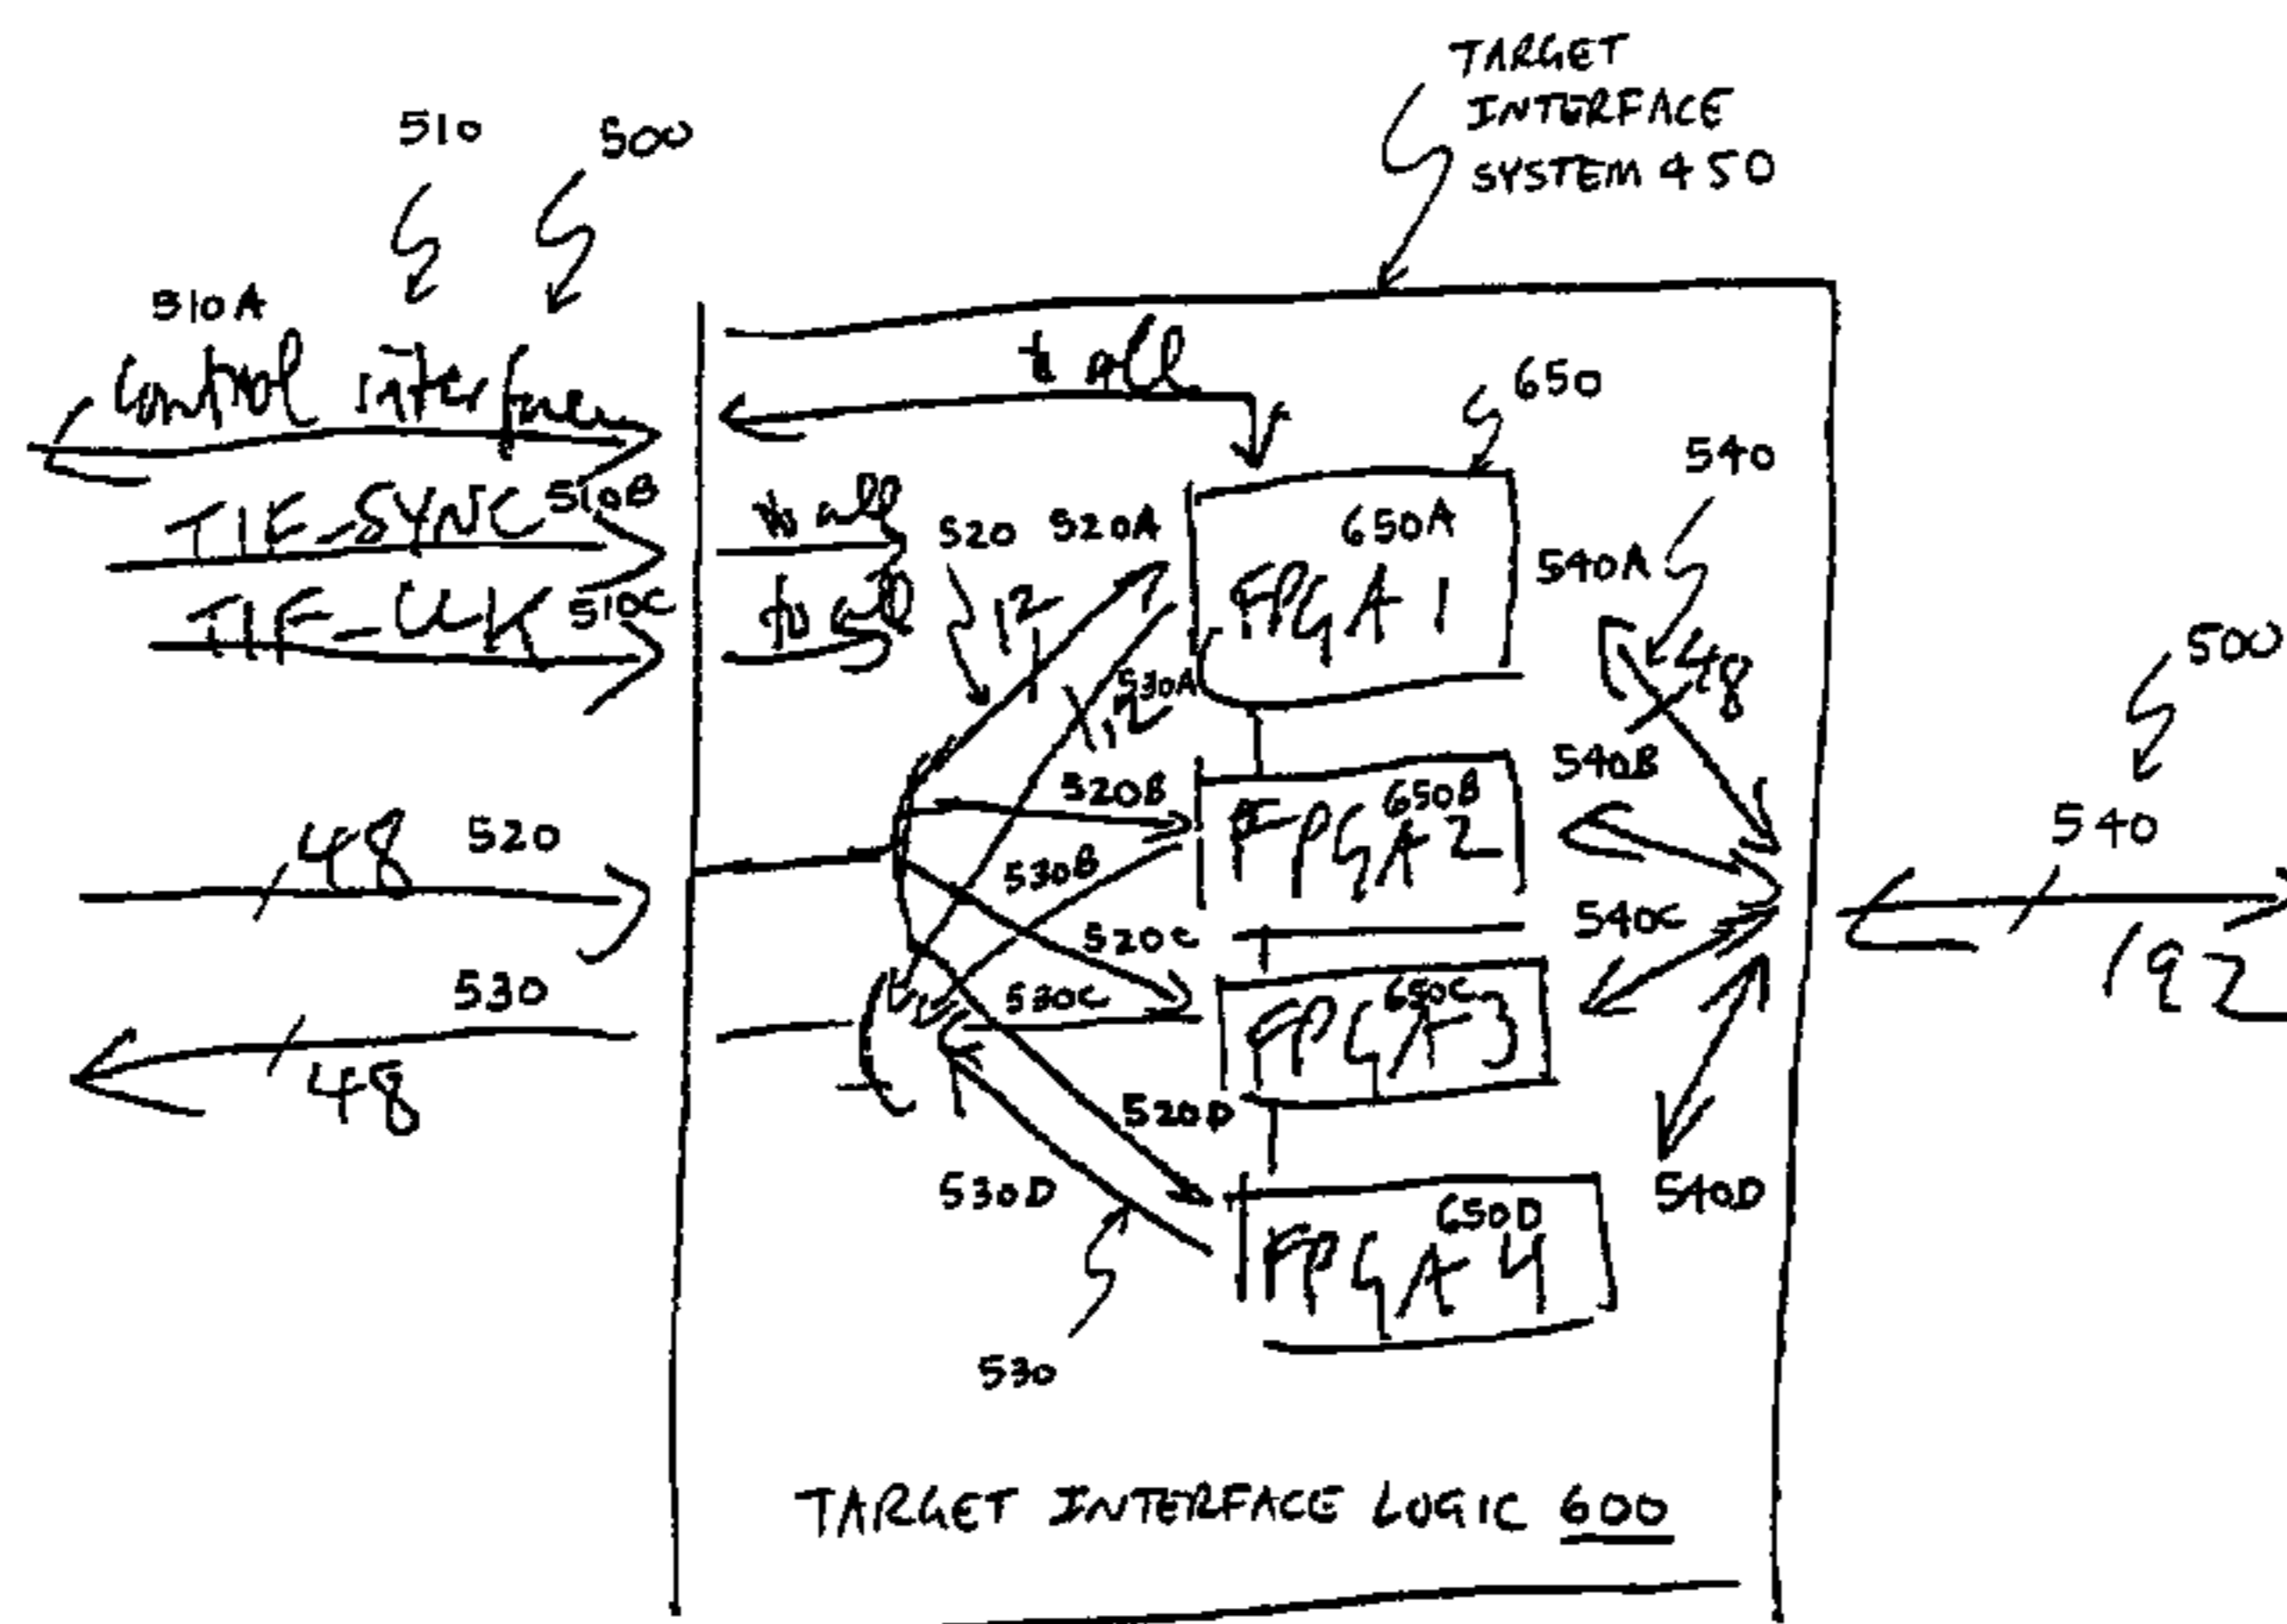 TARGET
INTERFACE
SYSTEM 450
510 500
510A
Control interface
to all
650
540
TIF_SYNC 510B
to all
520 520A
650A
FPGA 1
540A
TIF_CLK 510C
to all
12
530A
12
48
500
540B
520B
650B
FPGA 2
540
48 520
530B
540C
192
520C
530
48
530C
650C
FPGA 3
520D
530D
650D
FPGA 4
540D
530
TARGET INTERFACE LOGIC 600